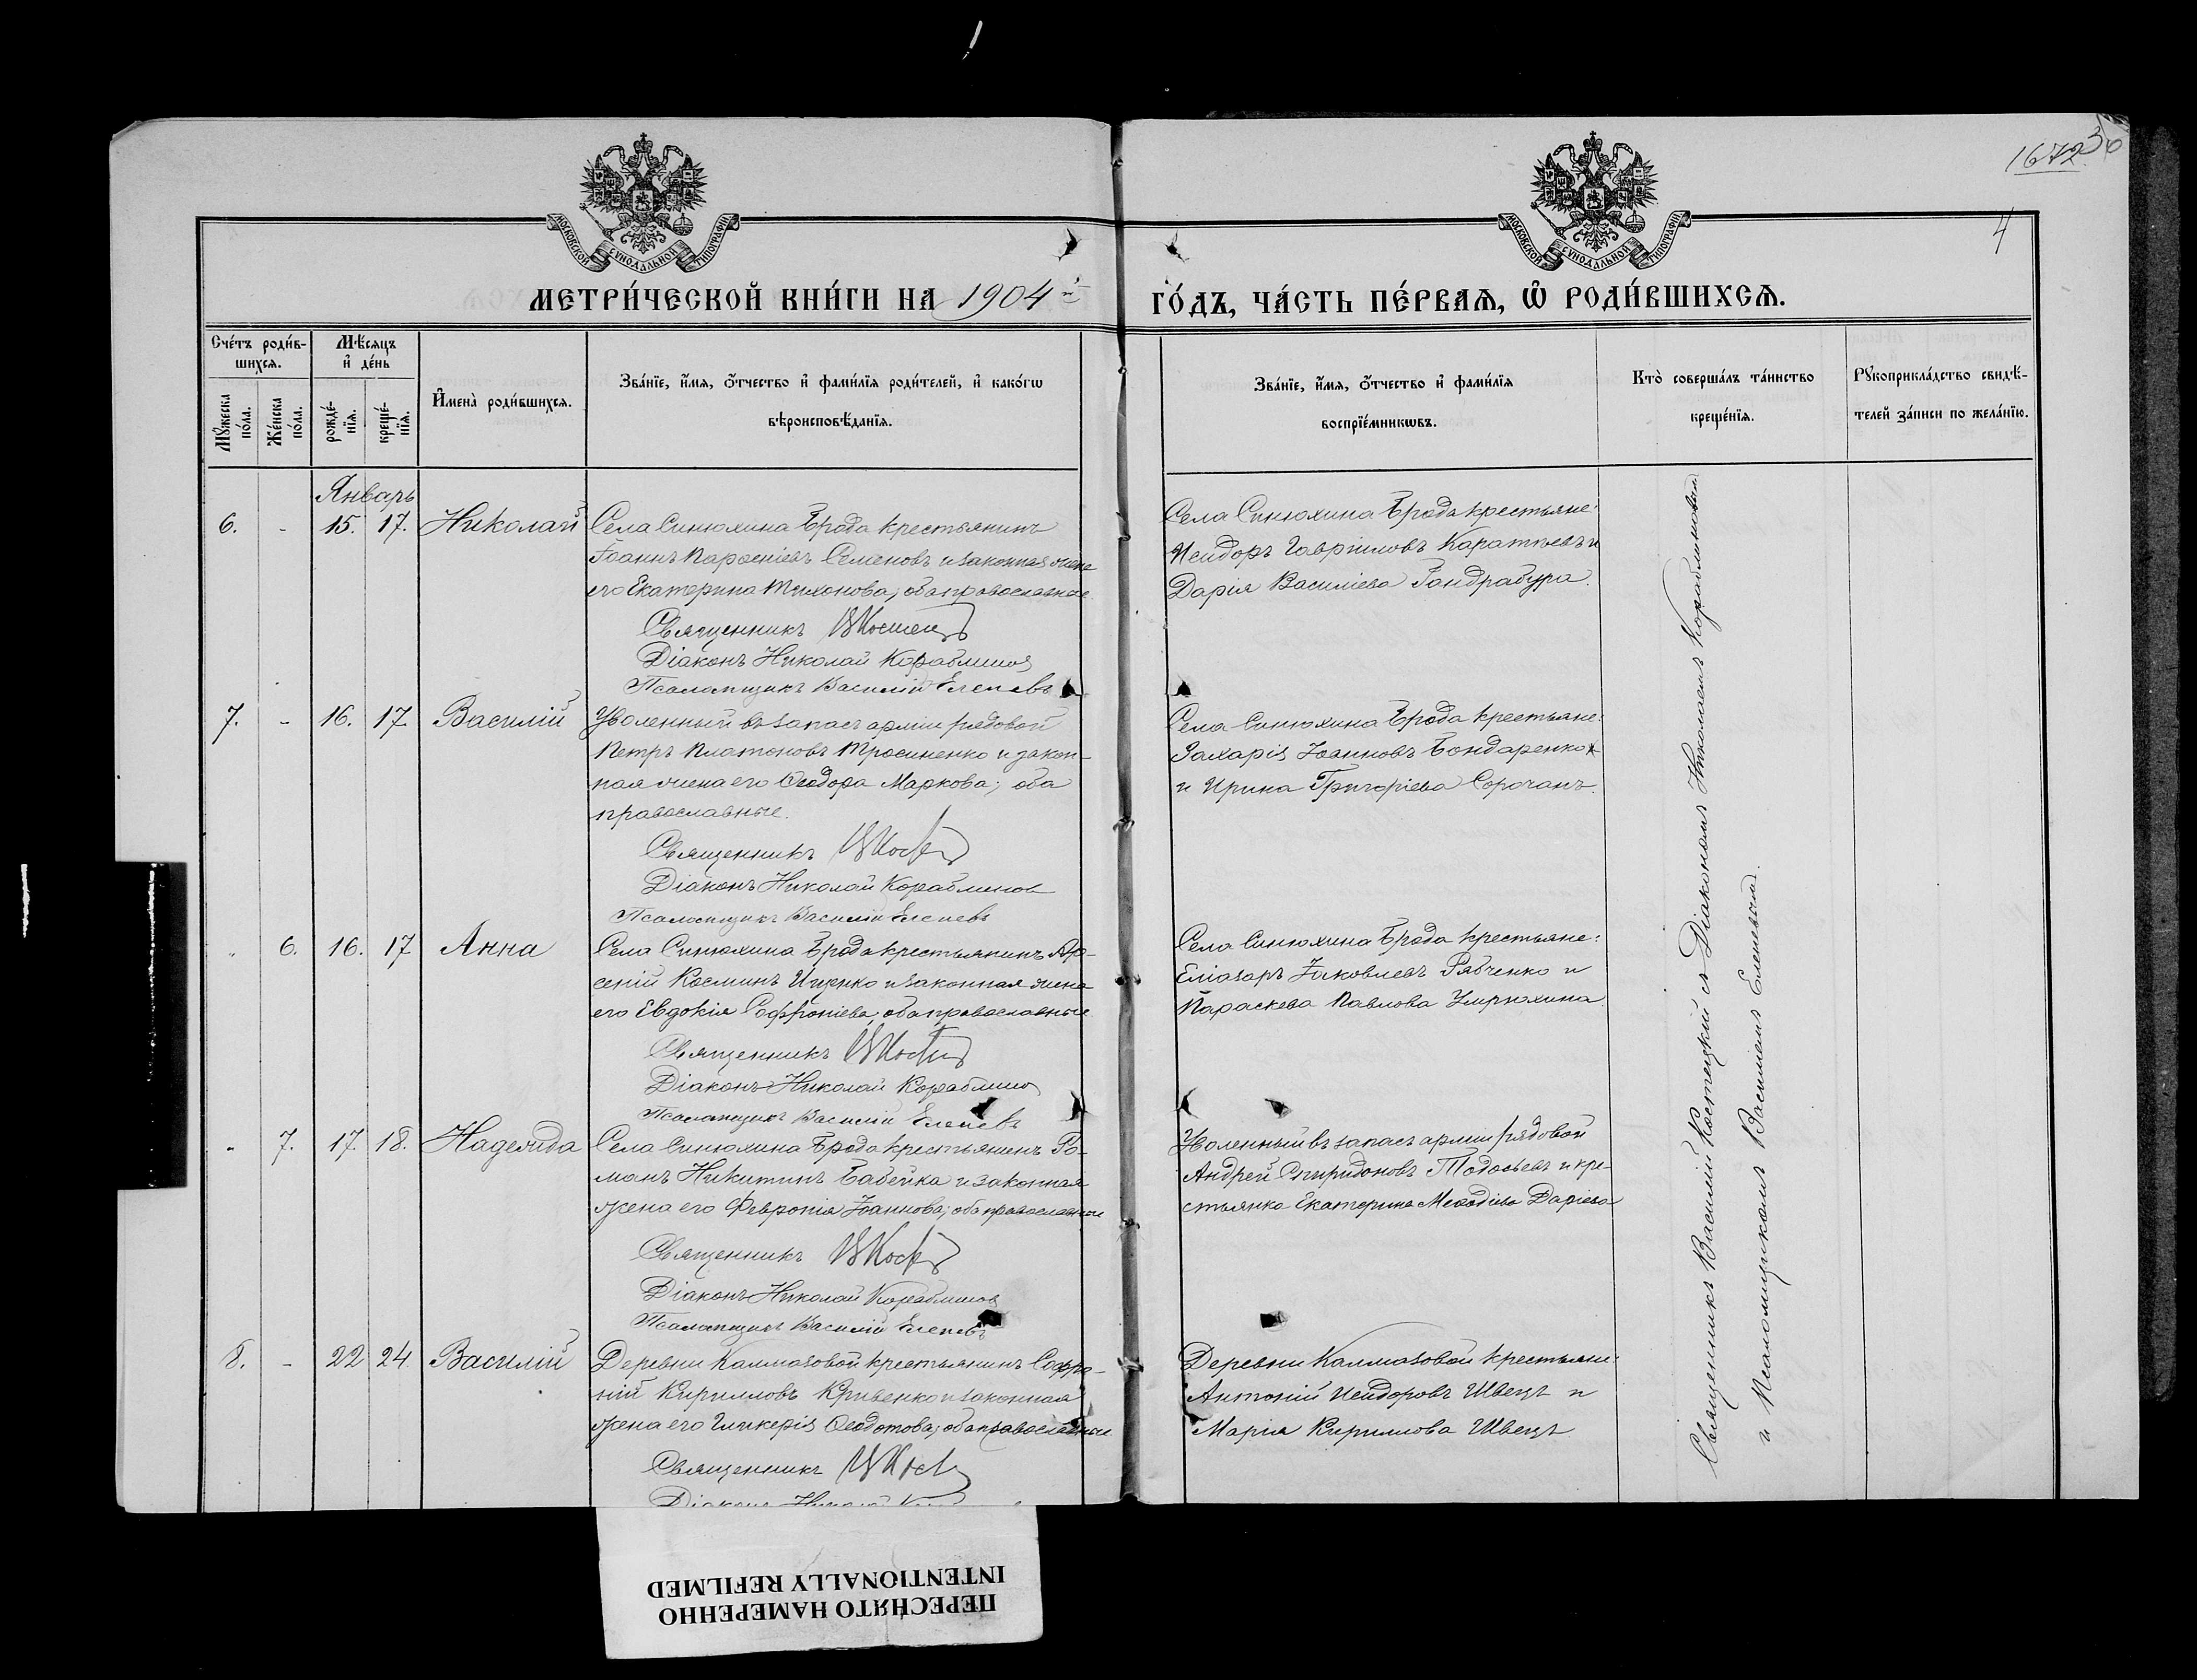 1672
36
4
МОСКОВСКОЙ СѴНОДАЛЬНОЙ ТИПОГРАФІИ
МОСКОВСКОЙ СѴНОДАЛЬНОЙ ТИПОГРАФІИ
МЕТРИ́ЧЕСКОЙ КНИ́ГИ НА 1904й ГО́ДЪ, ЧА́СТЬ ПЕ́РВАѦ, Ѽ РОДИ́ВШИХСѦ.
Сче́тъ роди́в-
шихсѧ.
Мꙋ́жеска по́ла.
Же́нска по́ла.
Мѣ́сѧцъ
и҆ де́нь
рожде́-
нїѧ.
креще́-
нїѧ.
И҆мена̀ роди́вшихсѧ.
Зва́нїе, и҆́мѧ, ѻ҆́тчество и҆ фами́лїѧ роди́телей, и҆ како́гѡ
вѣроисповѣ́данїѧ.
Зва́нїе, и҆́мѧ, ѻ҆́тчество и҆ фами́лїѧ
воспрїе́мникѡвъ.
Кто̀ соверша́лъ та́инство
креще́нїѧ.
Рꙋкоприкла́дство свидѣ́-
телей за́писи по жела́нїю.
Январь
6. - 15. 17. Николай
Села Синюхина Брода крестьянинъ
Іоаннъ Парѳеніевъ Семеновъ и законная жена
его Екатерина Тихонова; оба православные
Священникъ
Діаконъ Николай Кораблиновъ
Псаломщикъ Василій Елепевъ
Села Синюхина Брода крестьяне:
Исидоръ Гавріиловъ и
Дарія Василіева Гандрабура.
7. - 16. 17. Василій
Уволенный въ запасъ арміи рядовой
Петръ Платоновъ Тросиненко и закон-
ная жена его Ѳеодора Маркова; оба
православные.
Священникъ
Діаконъ Николай Кораблиновъ
Псаломщикъ Василій Елепевъ
Села Синюхина Брода крестьяне:
Захарія Іоанновъ Бондаренко
и Ирина Григоріева Сорочанъ.
" 6. 16. 17 Анна
Села Синюхина Брода крестьянинъ Ар-
сеній Косминъ Ищенко и законная жена
его Евдокія Софроніева, оба православные
Священникъ
Діаконъ Николай Кораблиновъ
Псаломщикъ Василій Елепевъ
Села Синюхина Брода крестьяне:
Еліазаръ Іаковлевъ Рябченко и
Параскева Павлова
" 7. 17 18. Надежда
Села Синюхина Брода крестьянинъ Ро-
манъ Никитинъ Бабейка и законная
жена его Февронія Іоаннова; оба православные
Священникъ
Діаконъ Николай Кораблиновъ
Псаломщикъ Василій Елепевъ
Уволенный въ запасъ арміи рядовой
Андрей Спиридоновъ Тодосьевъ и кре-
стьянка Екатерина Меѳодіева Даріева
8. - 22 24 Василій
Деревни Калмазовой крестьянинъ Софро-
ній Кирилловъ Кривенко и законная
жена его Гликерія Ѳеодотова; оба православные
Священникъ
Діаконъ Николай
Деревни Калмазовой крестьяне:
Антоній Исидоровъ Швецъ и
Марія Кириллова Швецъ
Священникъ Василій Костецкій съ Діакономъ Николаемъ Кораблиновымъ
и Псаломщикомъ Василіемъ Елепевымъ.
ПЕРЕСНЯТО НАМЕРЕННО
INTENTIONALLY REFILMED